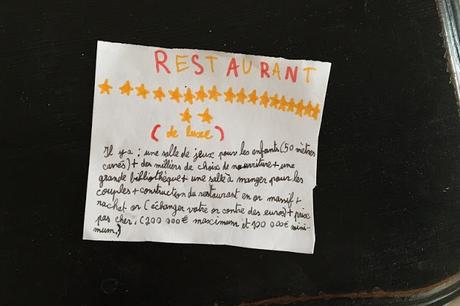 RESTAURANT
(de luxe)
Il y a : une salle de jeux pour les enfants (50 mètres
carrés) + des milliers de choix de nourriture + une
grande bibliothèque + une salle à manger pour les
couples + construction du restaurant en or massif +
rachat or (échanger votre or contre des euros) + prix
pas cher. (200 000€ maximum et 100 000€ mini-
mum.)